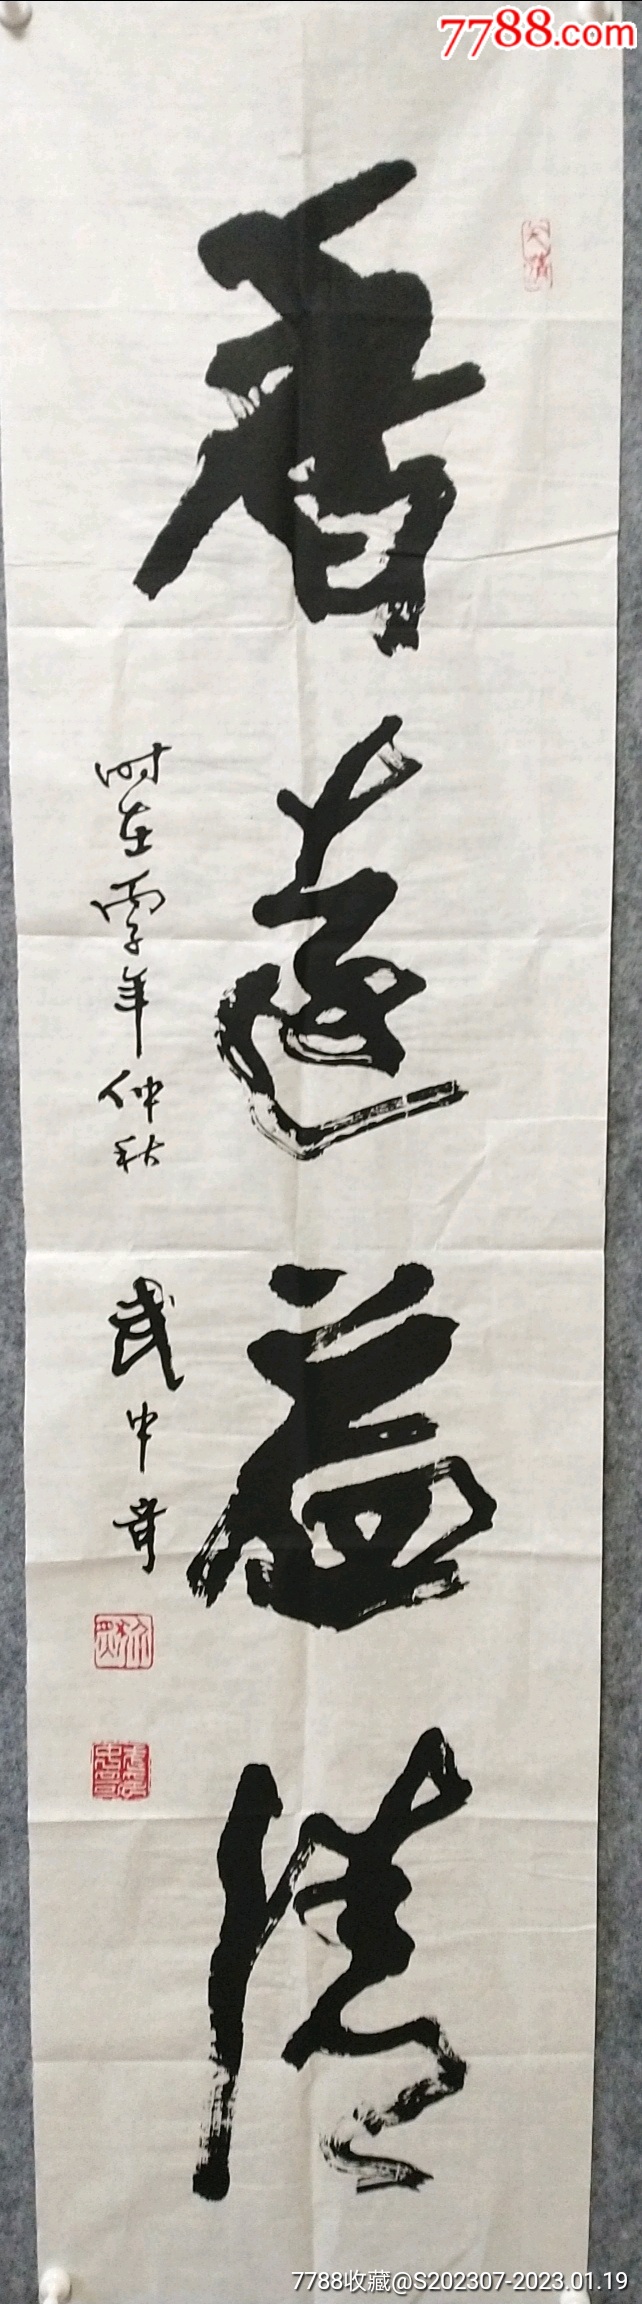 7788.com
香遠益清
时在丙子年仲秋 武中奇
7788收藏@S202307-2023.01.19